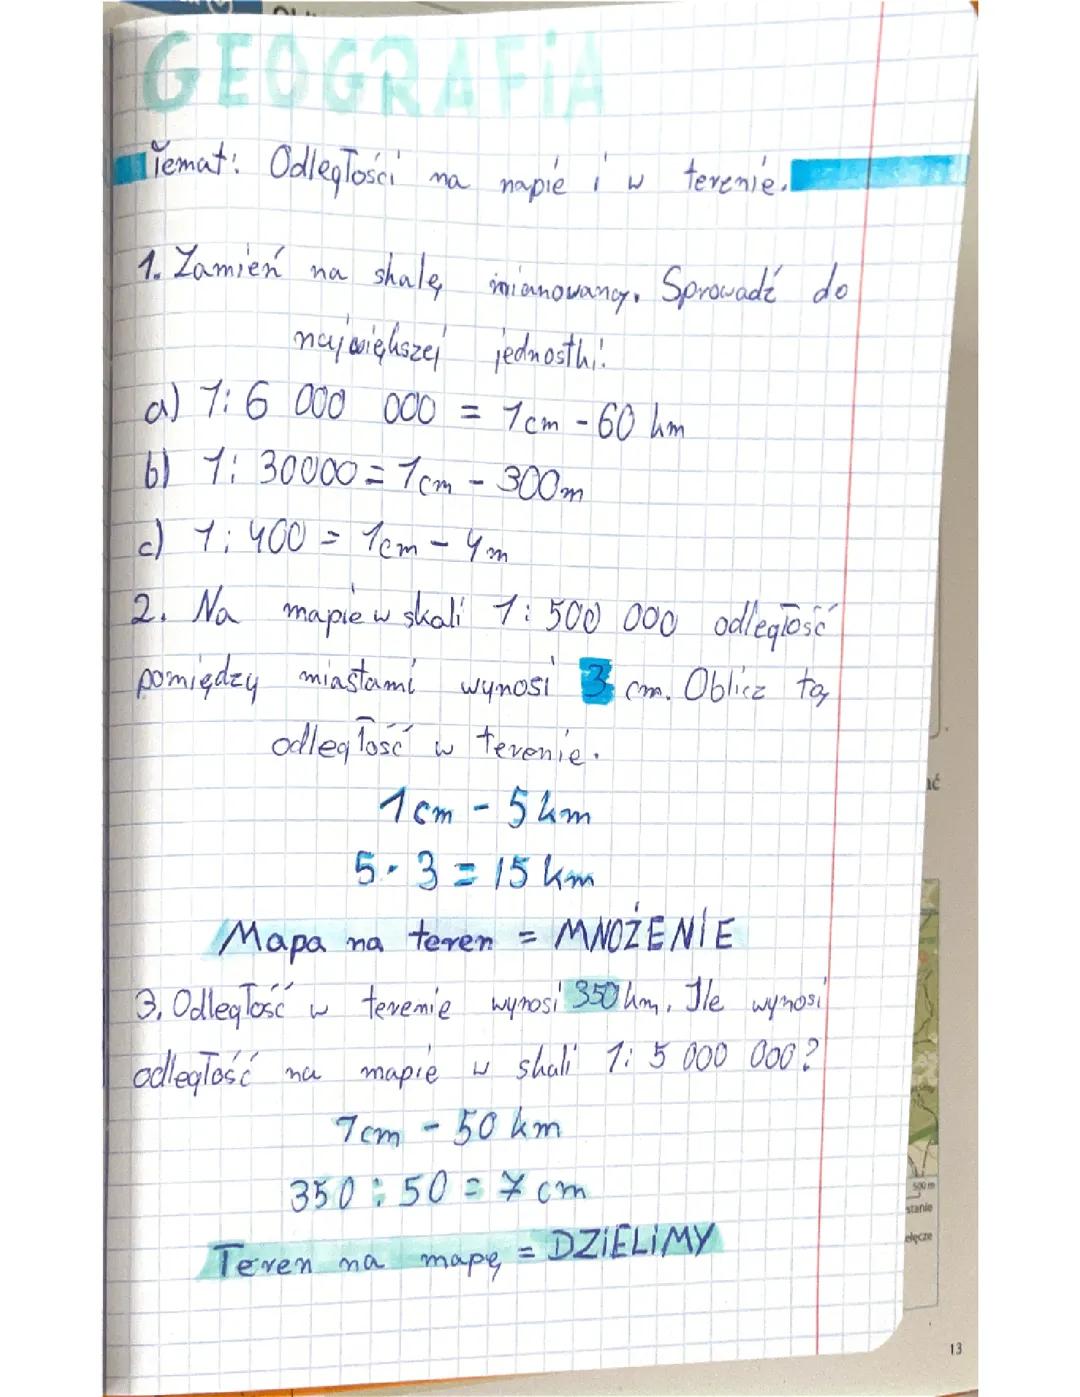 GEOGRAFiA
Temat: Odległości na mapie i w terenie.
1. Zamień na skalę mianowaną. Sprowadź do
największej jednostki.
a) 1:6 000 000 = 1cm - 60 km
b) 1: 30000 = 1cm - 300m
c) 1: 400 = 1cm - 4m
2. Na mapie w skali 1: 500 000 odległość
pomiędzy miastami wynosi 3 cm. Oblicz tą
odległość w terenie.
1cm - 5km
5 · 3 = 15 km
Mapa na teren = MNOŻENIE
3. Odległość w terenie wynosi 350km. Ile wynosi
odległość na mapie w skali 1: 5 000 000?
1cm - 50 km
350 : 50 = 7 cm
Teren na mapę = DZIELIMY
ać
500 m
stanie
ełęcze
13